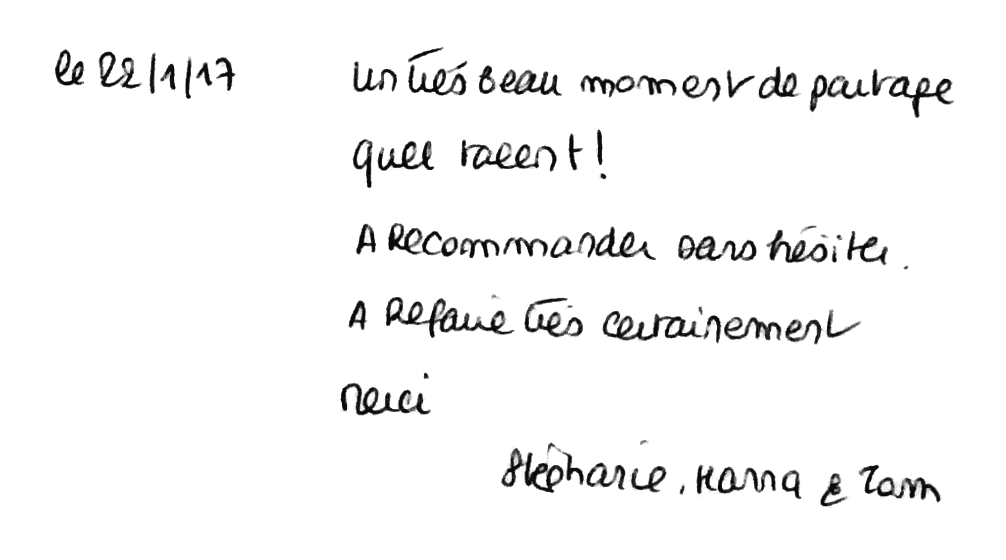 le 22/1/17 un très beau moment de partage
quel talent !
A Recommander sans hésiter.
A Refaire très certainement
Merci
Stéphanie, Hanna & Tom